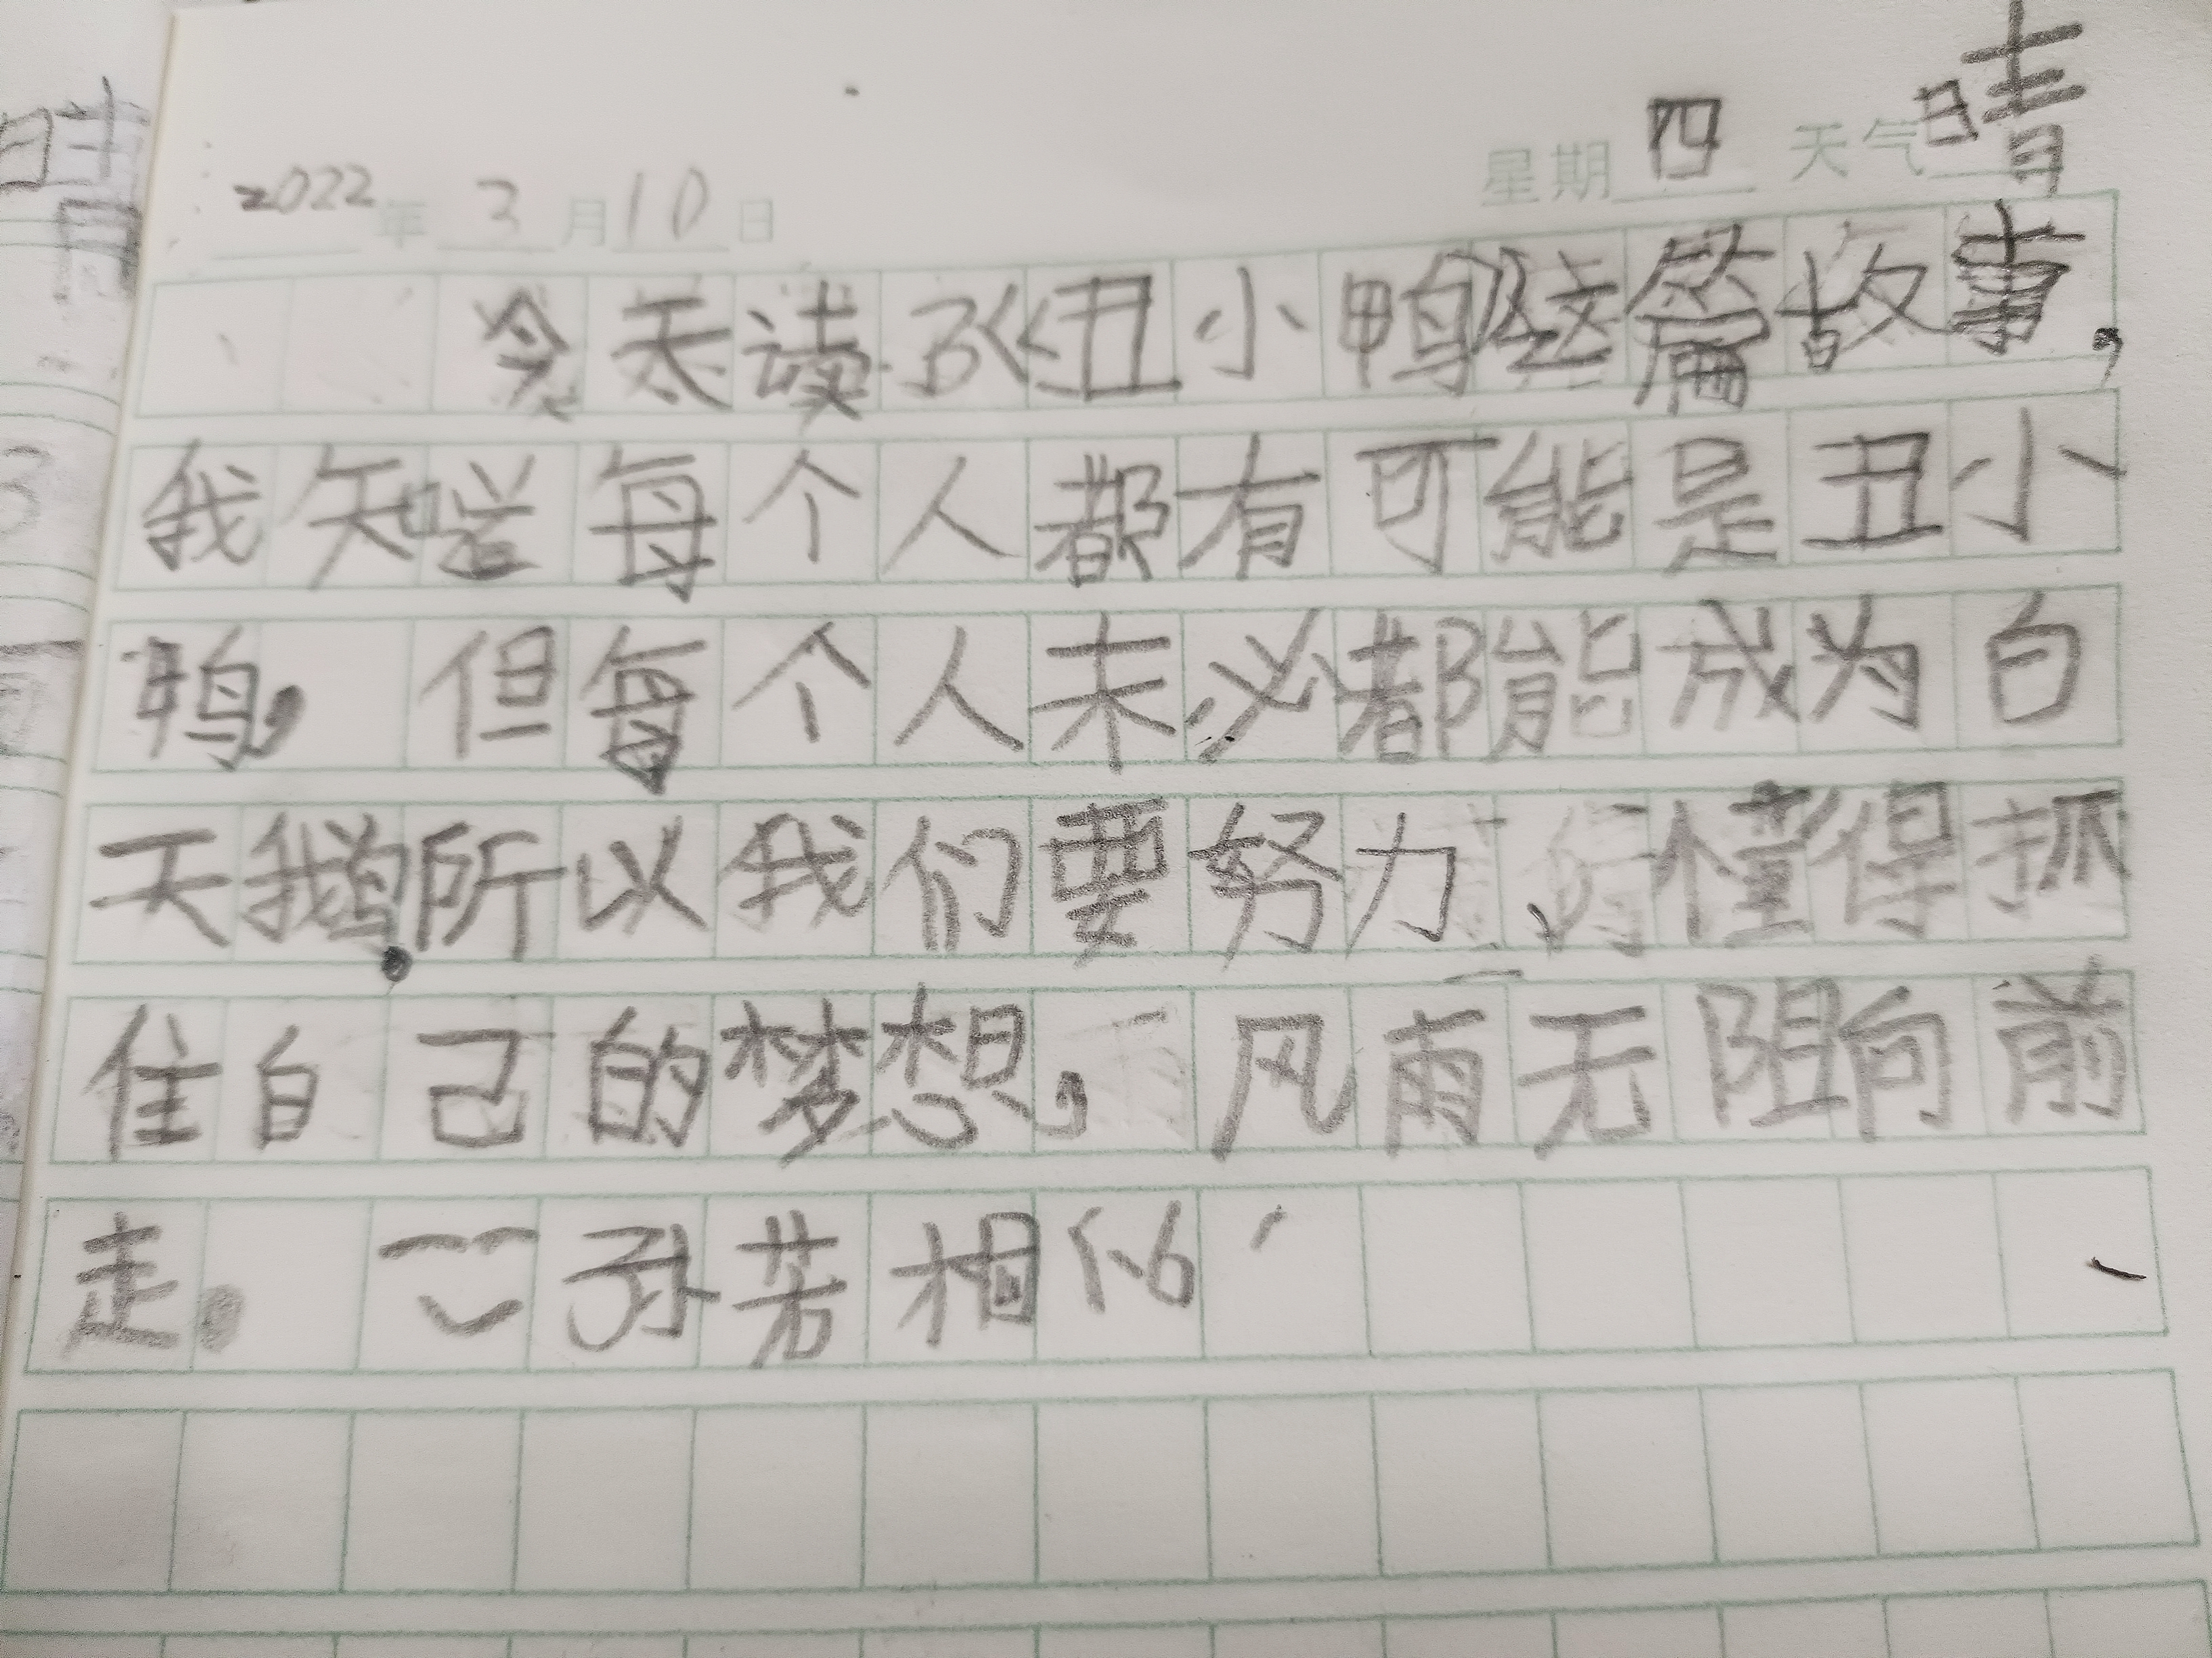 2022年3月10日 星期四 天气晴
今天读了《丑小鸭》这篇故事,
我知道每个人都有可能是丑小
鸭,但每个人未必都能成为白
天鹅.所以我们要努力、懂得抓
住自己的梦想,风雨无阻向前
走。孙若相